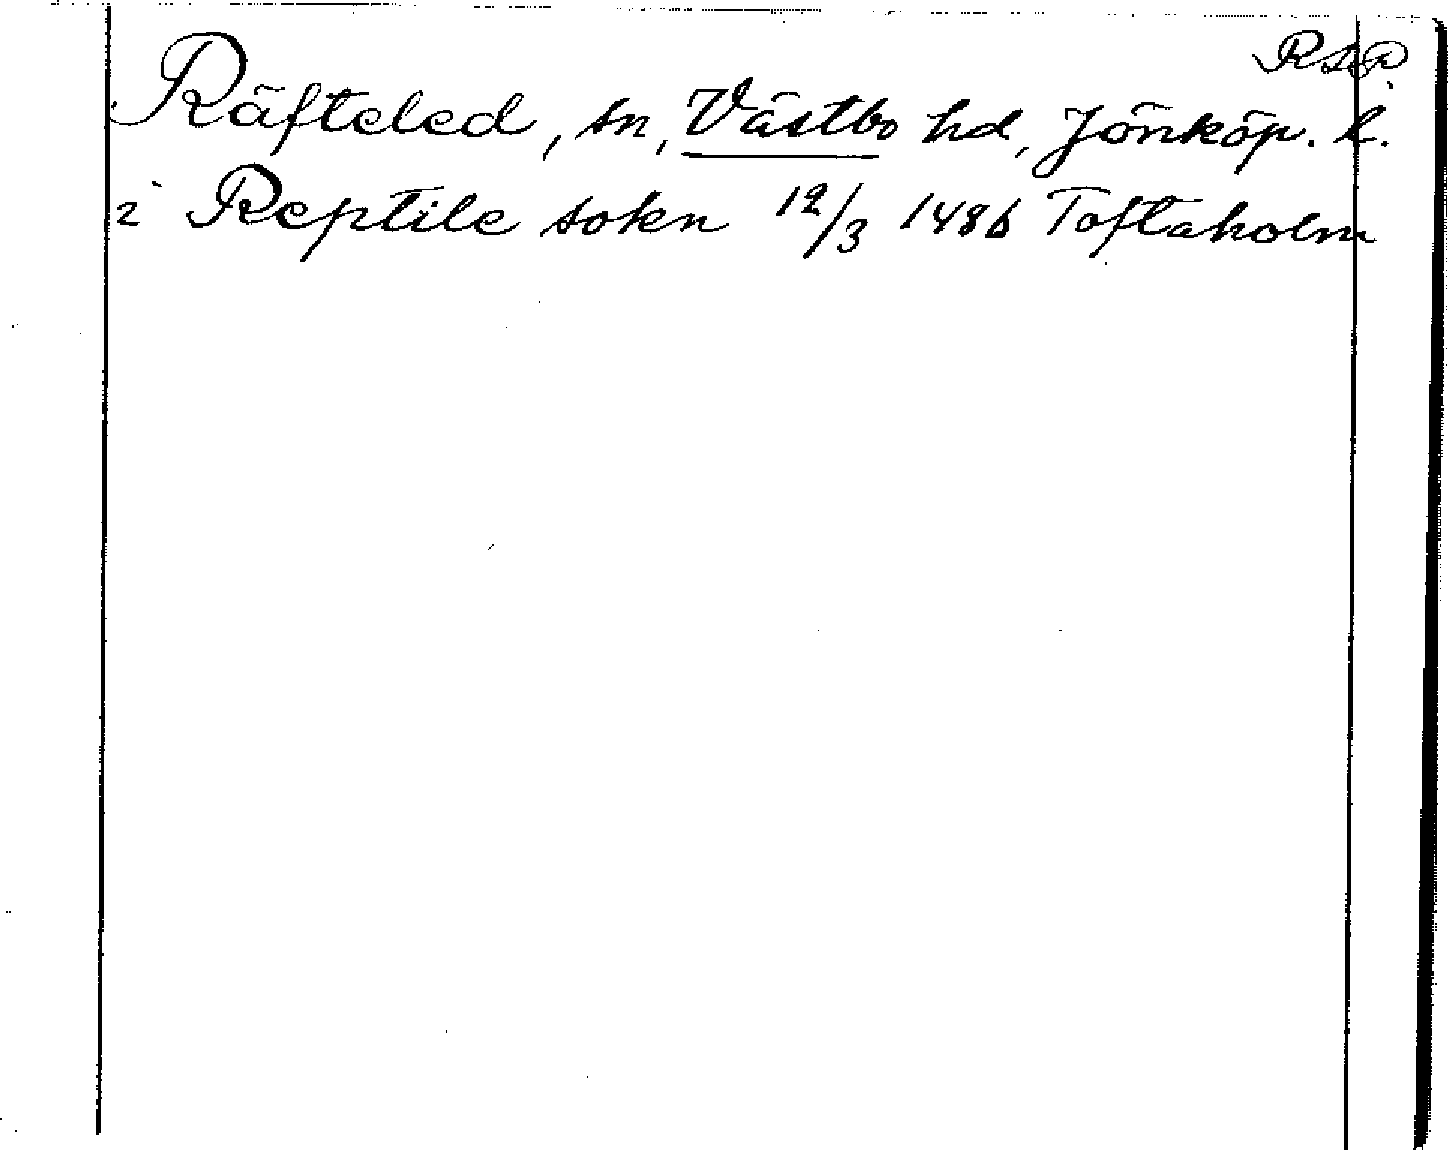 RAP
Räfteled, sn, Västbo hd, Jönköp. l.
i Reptile sokn 12/3 1486 Toftaholm